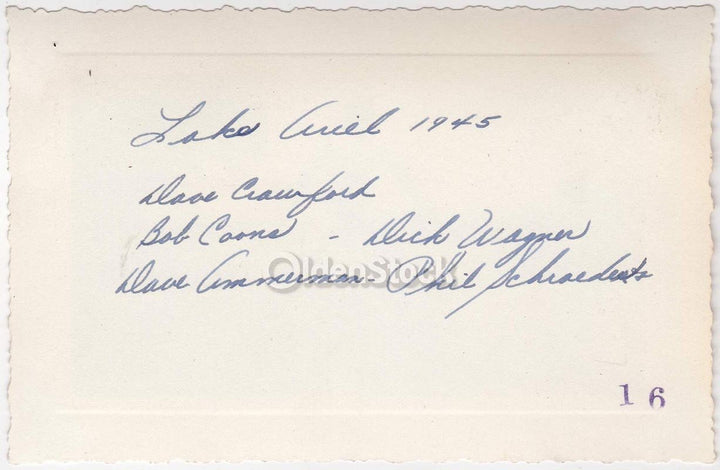 Lake Ariel 1945
Dave Crawford
Bob Coons - Dick Wagner
Dave Ammerman - Phil
OldenStock
16